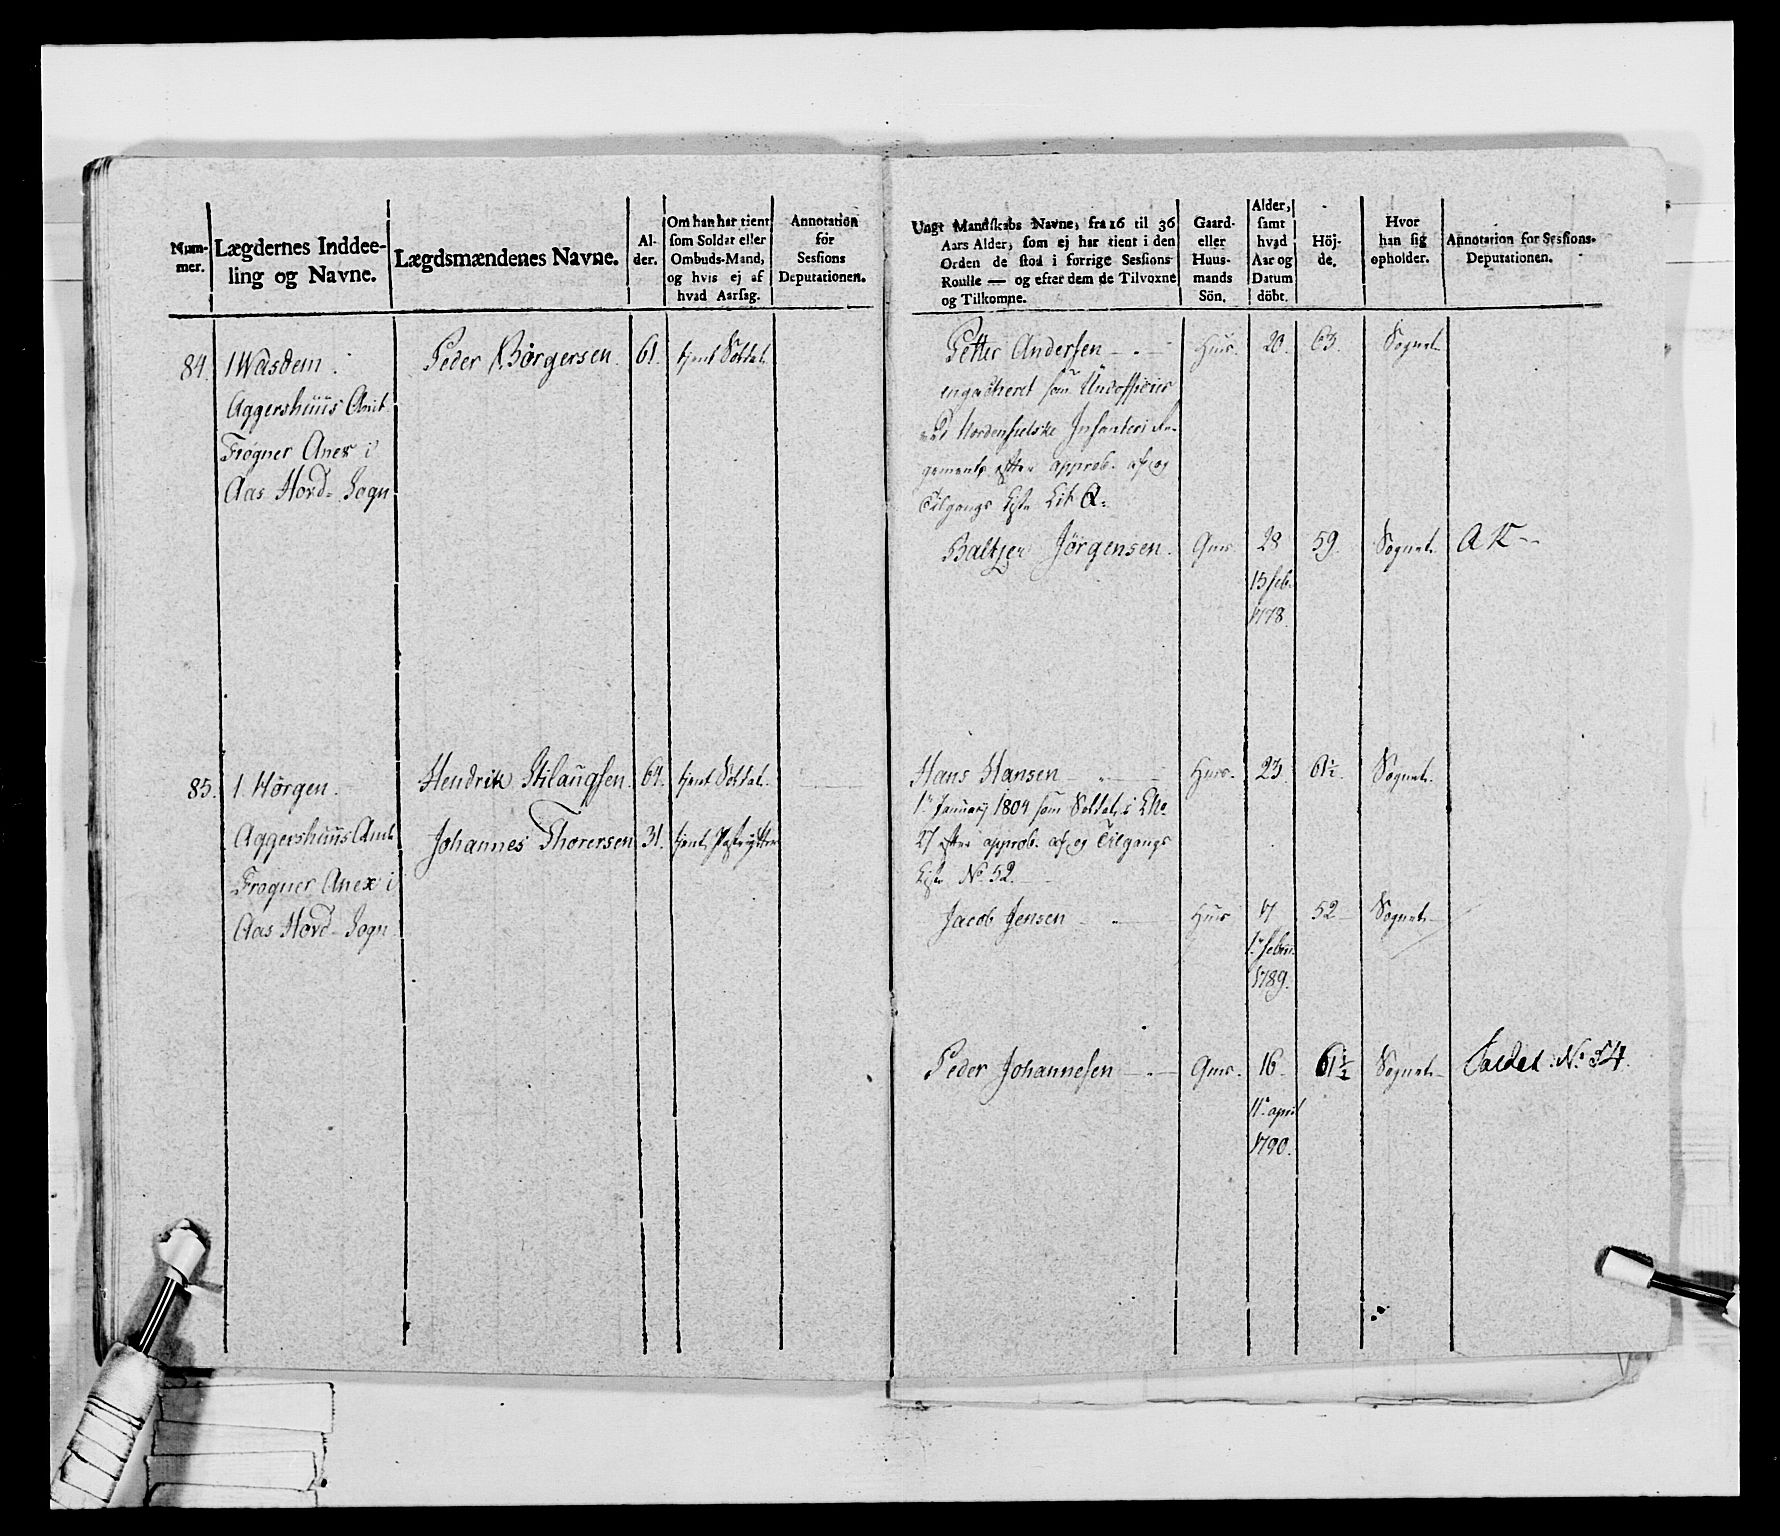 Num-
mer.
Lægdernes Inddee-
ling og Navne.
Lægdsmændenes Navne.
Al-
der.
Om han har tient
som Soldat eller
Ombuds-Mand,
og hvis ej af
hvad Aarsag.
Annotation
for
Sessions
Deputationen.
84.
1 Wasdem
Aggershuus Amt
Frogner Anex i
Aas Hovd- Sogn
Peder Børgersen.
61.
tjent Soldat.
85.
1 Hørgen.
Aggershuus Amt
Frogner Anex i
Aas Hovd- Sogn
Hendrik Stilaugsen.
64.
tjent Soldat.
Johannes Thorersen
31.
tjent
Ungt Mandskabs Navne, fra 16 til 36
Aars Alder, som ej har tient i den
Orden de stod i forrige Sessions-
Roulle — og efter dem de Tilvoxne
og Tilkomne.
Gaard-
eller
Huus-
mands
Sön.
Alder,
samt
hvad
Aar og
Datum
döbt.
Höj-
de.
Hvor
han sig
opholder.
Annotation for Sessions-
Deputationen.
Petter Andersen
Huus.
20.
63.
Sognet
engasheret som Underofficier
ved Nordenfielske Infanteri Re-
gement efter approb. af og
Tilgangs Liste Lit Q.
Baltzer Jørgensen.
Gms.
28
59.
Sognet
15 feb.
1778.
Hans Hansen
Huus.
23
61½.
Sognet
1 January 1804 som Soldat i
27 efter approb. af og Tilgangs
Liste No. 52.
Jacob Jensen
Huus
17
52
Sognet
1 febru.
1789.
Peder Johannesen
Gms.
16
61½
Sognet
No. 54.
11 april
1790.